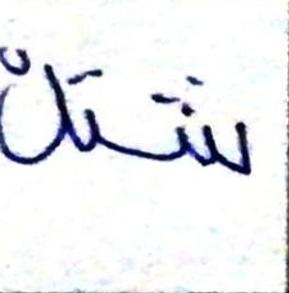 شتل